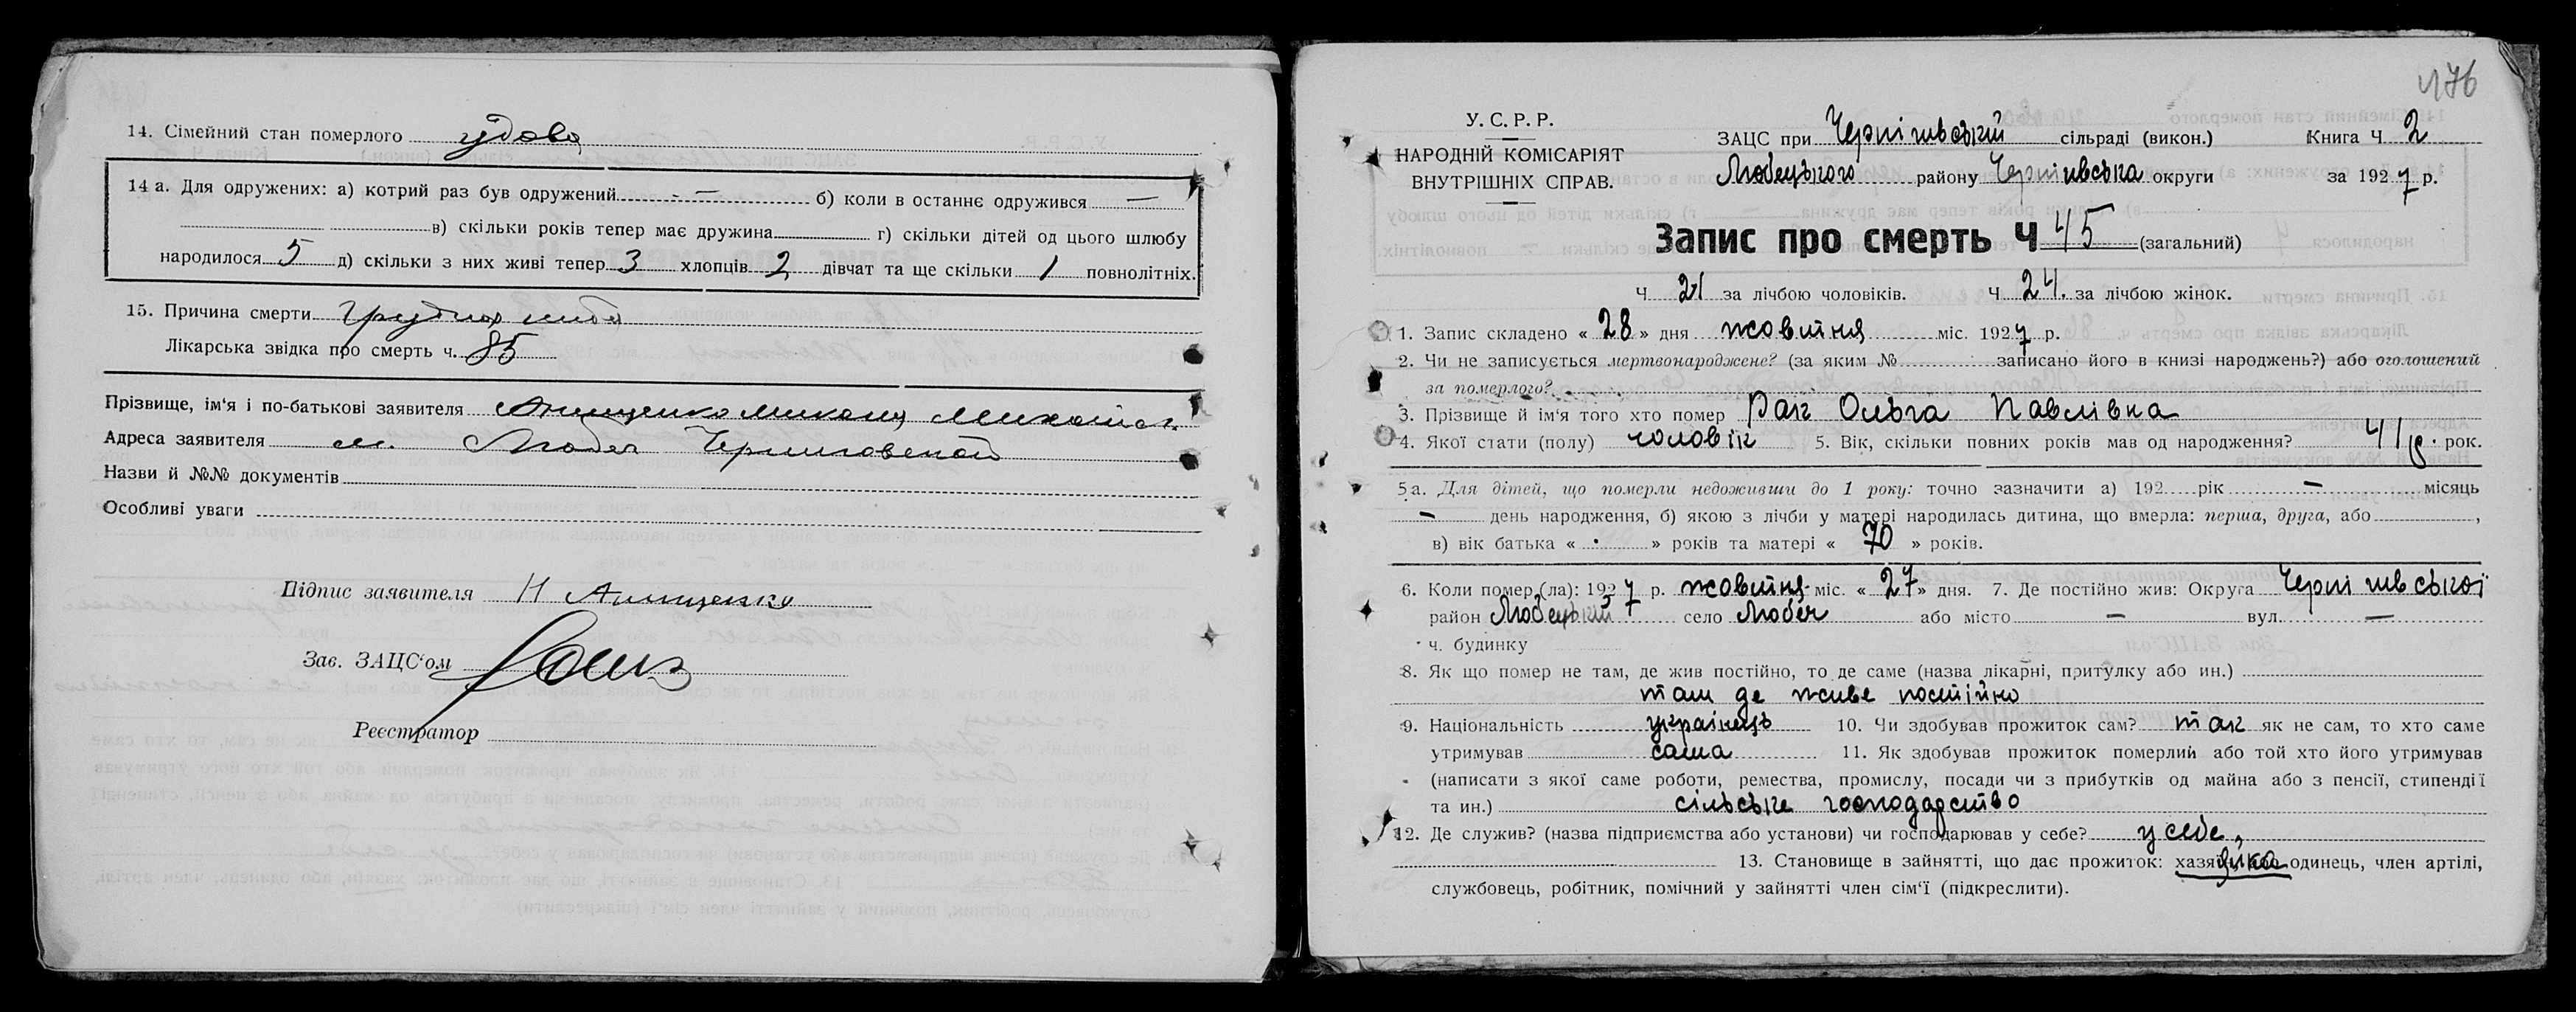 14. Сімейний стан померлого удова
14 а. Для одружених: а) котрий раз був одружений - — б) коли в останнє одружився —
в) скільки років тепер має дружина г) скільки дітей од цього шлюбу
народилося 5 д) скільки з них живі тепер 3 хлопців 2 дівчат та ще скільки 1 повнолітніх.
15. Причина смерти грудная
Лікарська звідка про смерть ч. 85
Прізвище, ім'я і по-батькові заявителя Анищенко Михайл.
Адреса заявителя м. Любеч Черниговской
Назви й №№ документів
Особливі уваги
Підпис заявителя Н Анищенко
Зав. ЗАЦС'ом
Реєстратор
476
У. С. Р. Р.
НАРОДНІЙ КОМІСАРІЯТ
ВНУТРІШНІХ СПРАВ.
ЗАЦС при Чернігівській сільраді (викон.) Книга Ч 2
Любецького району Чернігівська округи за 1927 р.
Запис про смерть Ч 45 (загальний)
Ч 21 за лічбою чоловіків. Ч 24. за лічбою жінок.
1. Запис складено « 28 » дня жовтня міс. 1927 р.
2. Чи не записується мертвонароджене? (за яким № записано його в книзі народжень?) або оголошений
за померлого?
3. Прізвище й ім'я того хто помер Рак Ольга Павлівна
4. Якої стати (полу) чоловік 5. Вік, скільки повних років мав од народження? 41 р. рок.
5 а. Для дітей, що померли недоживши до 1 року: точно зазначити а) 192 рік — місяць
— день народження, б) якою з лічби у матері народилась дитина, що вмерла: перша, друга, або ,
в) вік батька « » років та матері « 70 » років.
6. Коли помер (ла): 1927 р. жовтня міс. « 27 » дня. 7. Де постійно жив: Округа Чернігівської
район Любецький село Любеч або місто — вул. —
ч. будинку
8. Як що помер не там, де жив постійно, то де саме (назва лікарні, притулку або ин.)
там де живе постійно
9. Національність українець 10. Чи здобував прожиток сам? так як не сам, то хто саме
утримував сама 11. Як здобував прожиток померлий або той хто його утримував
(написати з якої саме роботи, ремества, промислу, посади чи з прибутків од майна або з пенсії, стипендії
та ин.) сільське господарство
12. Де служив? (назва підприємства або установи) чи господарював у себе? у себе,
13. Становище в зайнятті, що дає прожиток: хазяйка одинець, член артілі,
службовець, робітник, помічний у зайнятті член сім'ї (підкреслити).